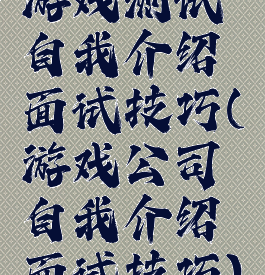 游戏测试
自我介绍
面试技巧(
游戏公司
自我介绍
面试技巧)